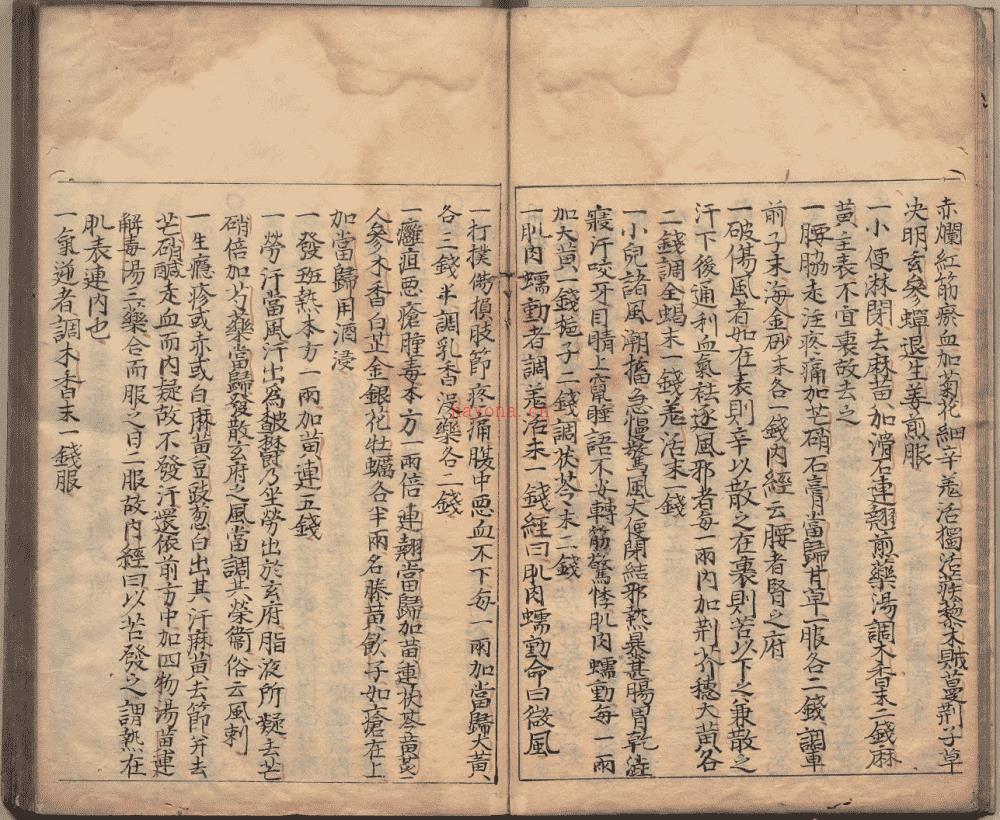 赤爛紅筋瘀血加菊花細辛羗活獨活蒺藜木賊蔓荆子草
决明玄參蟬退生姜煎服
一小便淋閉去麻黄加滑石連翹煎藥湯調木香末二錢麻
黄主表不宜裏故去之
一腰脇走注疼痛加芒硝石膏當歸甘草一服各二錢調車
前子末海金砂末各一錢內經云腰者腎之府
一破傷風者如在表則辛以散之在裏則苦以下之兼散之
汗下後通利血氣祛逐風邪者每一兩內加荆芥穗大黄各
二錢調全蝎末一錢羗活末一錢
一小兒諸風潮搐急慢驚風大便閉結邪熱暴甚腸胃乾澁
寢汗咬牙目睛上竄睡語不安轉筋驚悸肌肉蠕動每一兩
加大黄一錢梔子二錢調茯苓末二錢
一肌肉蠕動者調羗活末一錢經曰肌肉蠕動命曰微風
一打撲傷損肢節疼痛腹中悪血不下每一兩加當歸大黄
各三錢半調乳香没藥各二錢
一癰疽悪瘡腫毒本方一兩倍連翹當歸加黄連茯苓黄芪
人參木香白芷金銀花牡蠣各半兩名騰黄飲子如瘡在上
加當歸用酒浸
一發班熱本方一兩加黄連五錢
一勞汗當風汗出爲皶欝乃坐勞出於玄府脂液所凝去芒
硝倍加芍藥當歸發散玄府之風當調其榮衛俗云風刺
一生癮疹或赤或白麻黄豆豉葱白出其汗麻黄去節并去
芒硝鹹走血而內凝故不發汗還依前方中加四物湯黄連
解毒湯三藥合而服之日二服故內經曰以苦發之謂熱在
肌表連內也
一氣逆者調木香末一錢服
nayona.cn